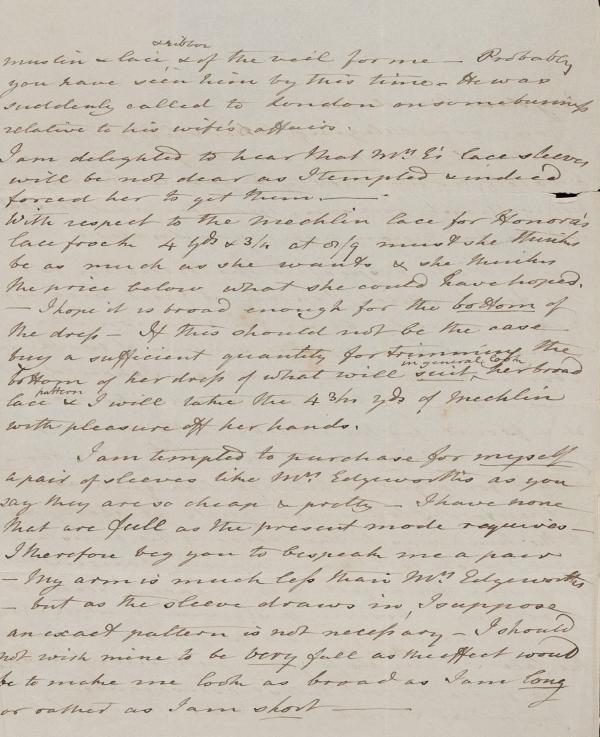 & ribbon
muslin & lace & of the veil for me – Probably
you have seen him by this time – He was
suddenly called to London on some business
relative to his wife's affairs.
I am delighted to hear that Mrs E's lace sleeves
will be not dear as I tempted & indeed
forced her to get them. —
With respect to the Mechlin lace for Honora's
lace frock 4 yds & 3/4 at 8/9 must she thinks
be as much as she wants & she thinks
the price below what she could have hoped.
– I hope it is broad enough for the bottom of
the dress – If this should not be the case
buy a sufficient quantity for trimming the
in general look
bottom of her dress of what will suit her broad
pattern
lace & I will take the 4 3/4 yds of Mechlin
with pleasure off her hands.
I am tempted to purchase for myself
a pair of sleeves like Mrs Edgeworth's as you
say they are so cheap & pretty – I have none
that are full as the present mode requires –
I therefore beg you to bespeak me a pair
– My arm is much less than Mrs Edgeworth's
– but as the sleeve draws in, I suppose
an exact pattern is not necessary – I should
not wish mine to be very full as the effect would
be to make me look as broad as I am long
or rather as I am short —